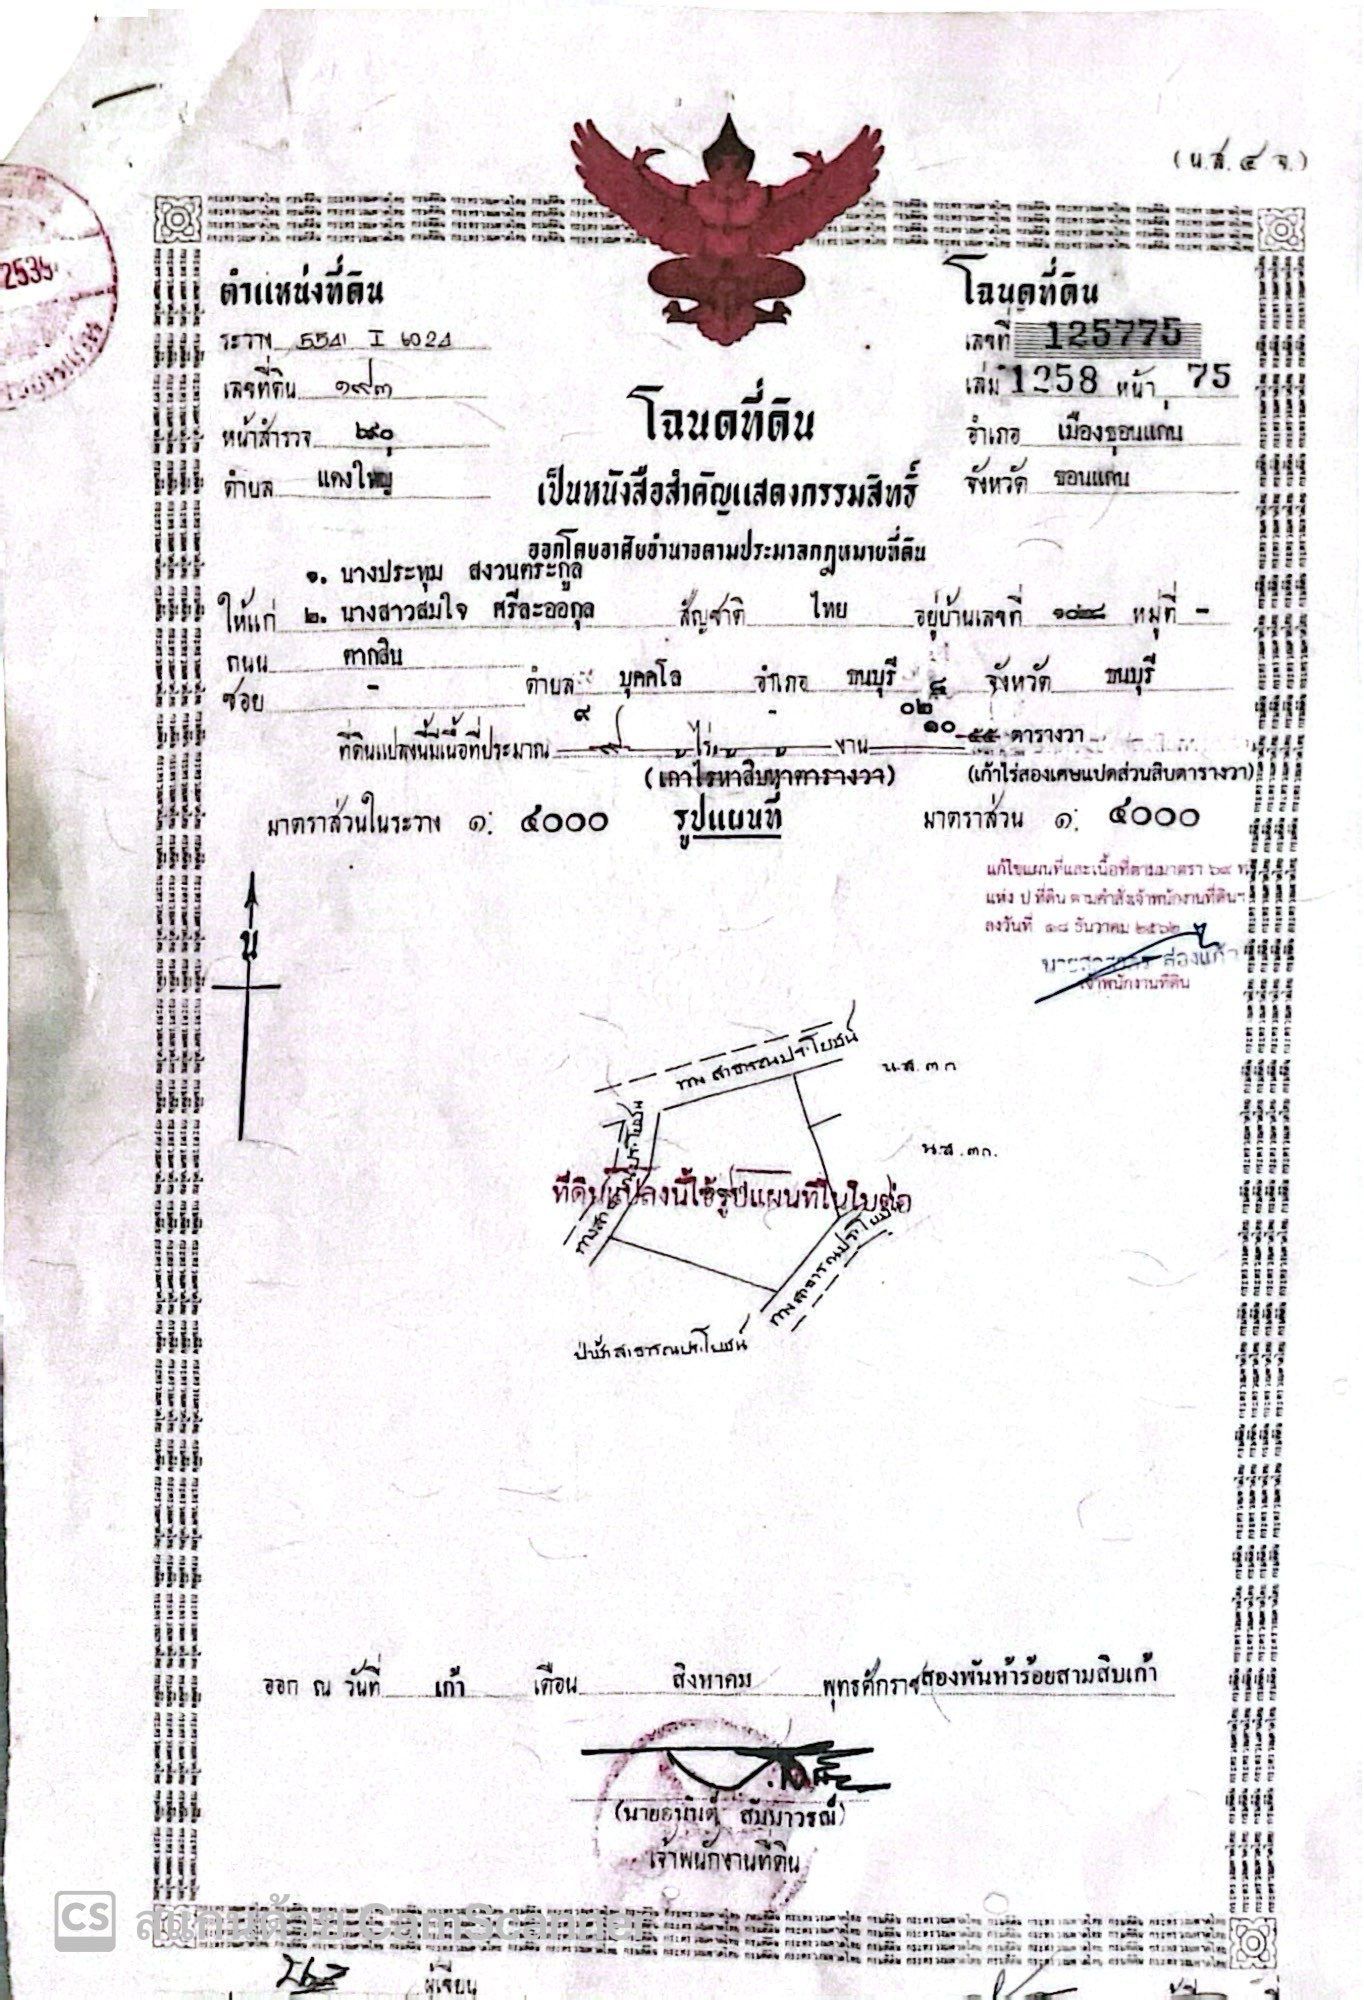 (น.ส. ๔ จ.)
2535
ตำแหน่งที่ดิน
โฉนดที่ดิน
ระวาง 5541 I 6024
เลขที่ 125775
เลขที่ดิน ๑๙๓
เล่ม 1258 หน้า 75
หน้าสำรวจ ๒๙๐
โฉนดที่ดิน
อำเภอ เมืองขอนแก่น
ตำบล แดงใหญ่
เป็นหนังสือสำคัญแสดงกรรมสิทธิ์
จังหวัด ขอนแก่น
ออกโดยอาศัยอำนาจตามประมวลกฎหมายที่ดิน
๑. นางประทุม สงวนตระกูล
ให้แก่ ๒. นางสาวสมใจ ศรีละออกุล สัญชาติ ไทย อยู่บ้านเลขที่ หมู่ที่ -
ถนน ตากสิน
ซอย - ตำบล บุคคโล อำเภอ ธนบุรี จังหวัด ธนบุรี
๙ - ๐๒ ๘
๑๐
ที่ดินแปลงนี้มีเนื้อที่ประมาณ ๙ ไร่ งาน ๕๕ ตารางวา
(เก้าไร่ห้าสิบห้าตารางวา) (เก้าไร่สองเศษแปดส่วนสิบตารางวา)
มาตราส่วนในระวาง ๑: ๔๐๐๐ รูปแผนที่ มาตราส่วน ๑: ๔๐๐๐
แก้ไขแผนที่และเนื้อที่ตามมาตรา ๖๙ ท
แห่ง ป ที่ดิน ตามคำสั่งเจ้าพนักงานที่ดินฯ
ลงวันที่ ๑๘ ธันวาคม ๒๕๖๒
ส่องแก้ว
เจ้าพนักงานที่ดิน
น
ทางสาธารณประโยชน์
น.ส.๓ก
น.ส.๓ก.
ทางสาธารณประโยชน์
ที่ดินแปลงนี้ใช้รูปแผนที่ในใบต่อ
ทางสาธารณประโยชน์
ป่าช้าสาธารณประโยชน์
ออก ณ วันที่ เก้า เดือน สิงหาคม พุทธศักราช สองพันห้าร้อยสามสิบเก้า
(นายอนันต์ สัมมาวรณ์)
เจ้าพนักงานที่ดิน
CS สแกนด้วย CamScanner
ผู้เขียน